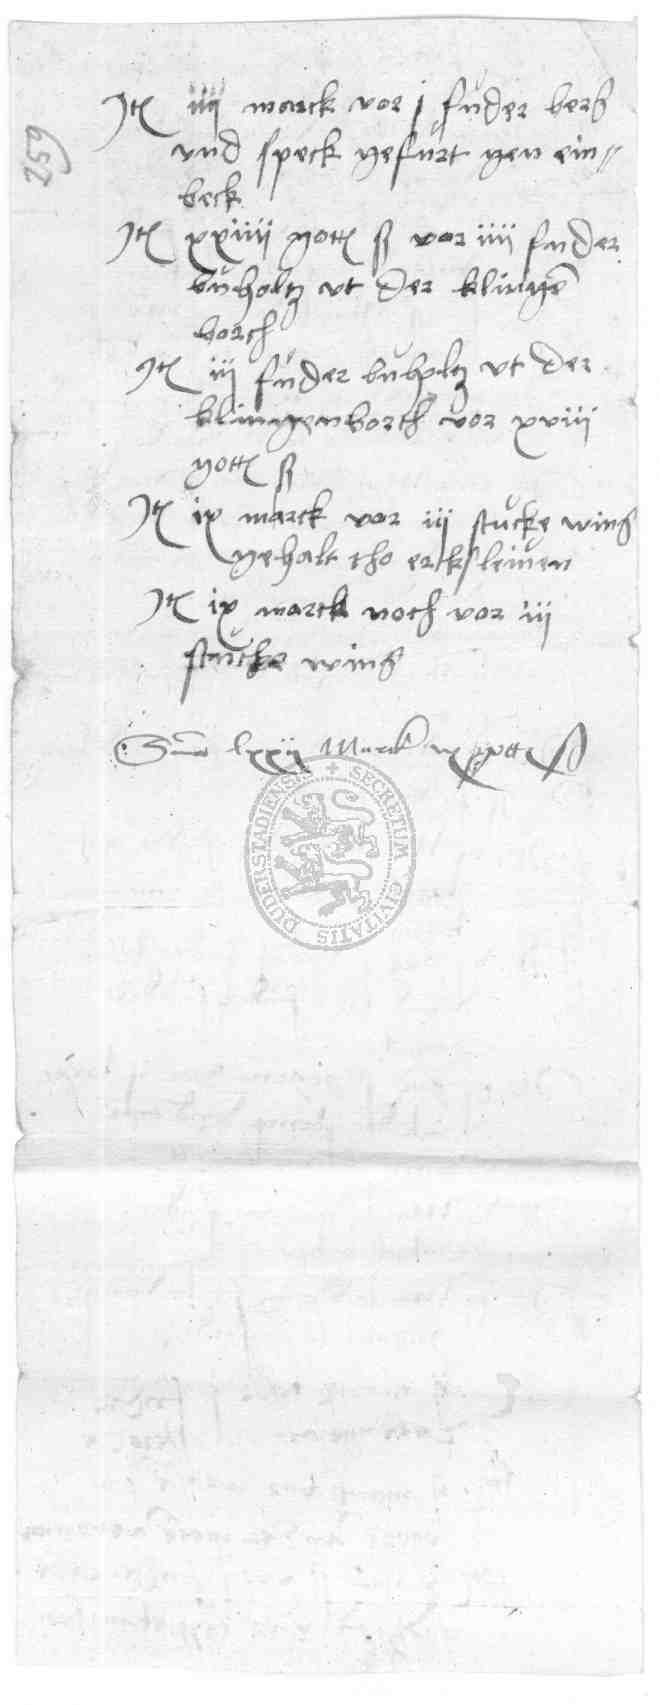 259
Jt iiij marck vor j fuder berß
vnd speck gefurt gen ein„
beck
Jt xxiiij gott ß vor iiij fuder
buholtz vt der klingē
borch
Jt iij fuder buholtz vt der
klingenborch vor xviij
gott ß
Jt ix marck vor iij stucke winß
gehalt tho erksleuen
Jt ix marck noch vor iij
stucke winß
Sum lxxij Marck gott ß
SECRETUM CIVITATIS DUDERSTADIENSIS